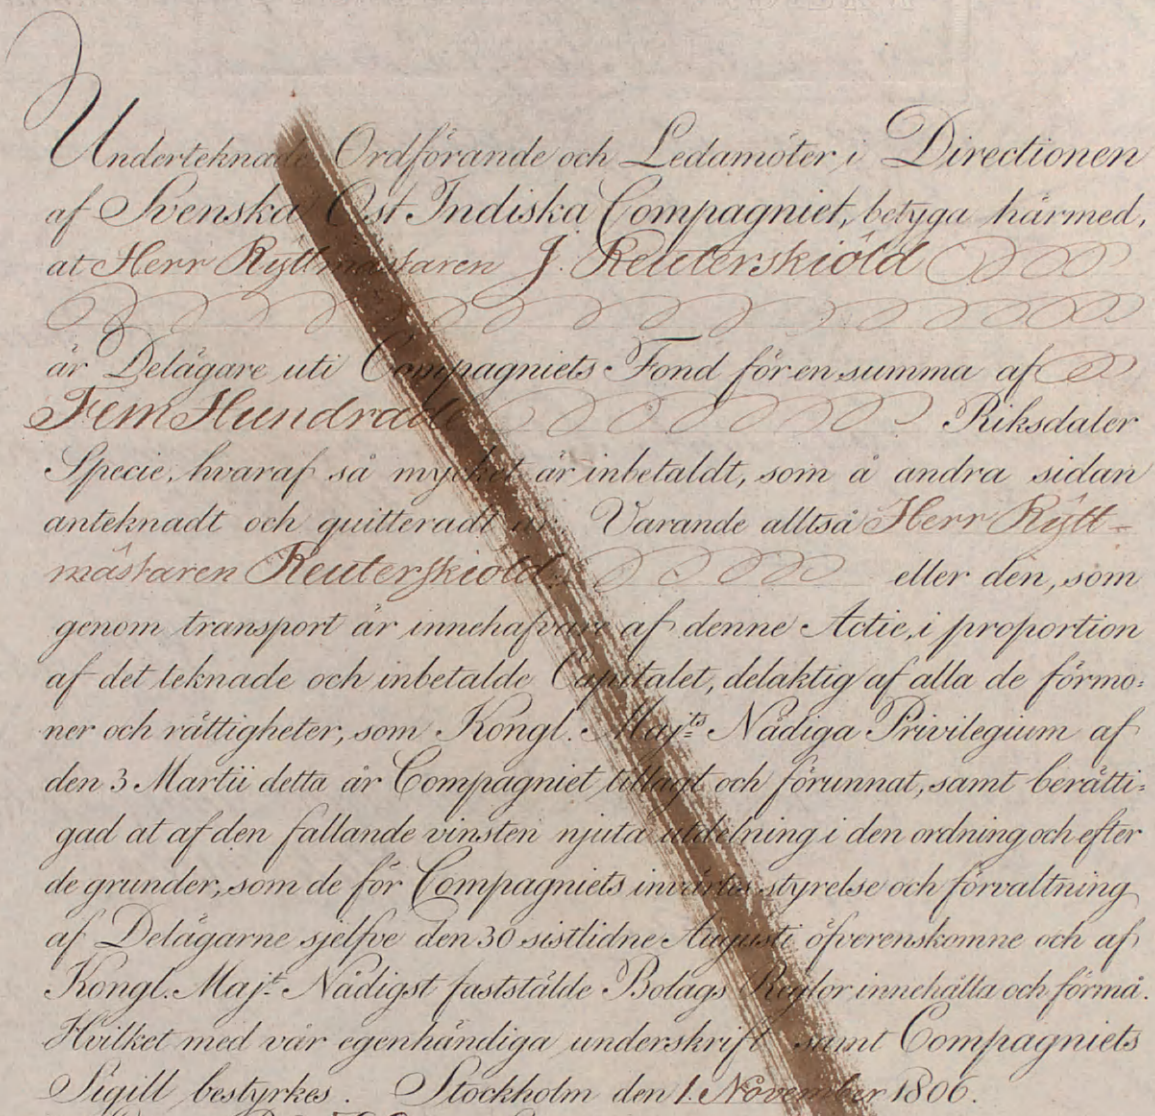 Underteknade Ordförande och Ledamöter i Directionen
af Svenska Ost Indiska Compagniet, betyga härmed,
at Herr Ryttmästaren J. Reuterskiöld
är Delägare uti Compagniets Fond för en summa af
Fem Hundrade Riksdaler
Specie, hvaraf så mycket är inbetaldt, som å andra sidan
anteknadt och quitteradt är. Varande alltså Herr Rytt=
mästaren Reuterskiöld. eller den, som
genom transport är innehafvare af denne Actie, i proportion
af det teknade och inbetalde Capitalet, delaktig af alla de förmo=
ner och rättigheter, som Kongl. Maj:ts Nådiga Privilegium af
den 3 Martii detta år Compagniet tillagt och förunnat, samt berätti=
gad at af den fallande vinsten njuta utdelning i den ordning och efter
de grunder, som de för Compagniets invärtes styrelse och förvaltning
af Delägarne sjelfve den 30 sistlidne Augusti öfverenskomne och af
Kongl. Maj:t Nådigst faststälde Bolags Reglor innehålla och förmå.
Hvilket med vår egenhändiga underskrift samt Compagniets
Sigill bestyrkes. Stockholm den 1. November 1806.